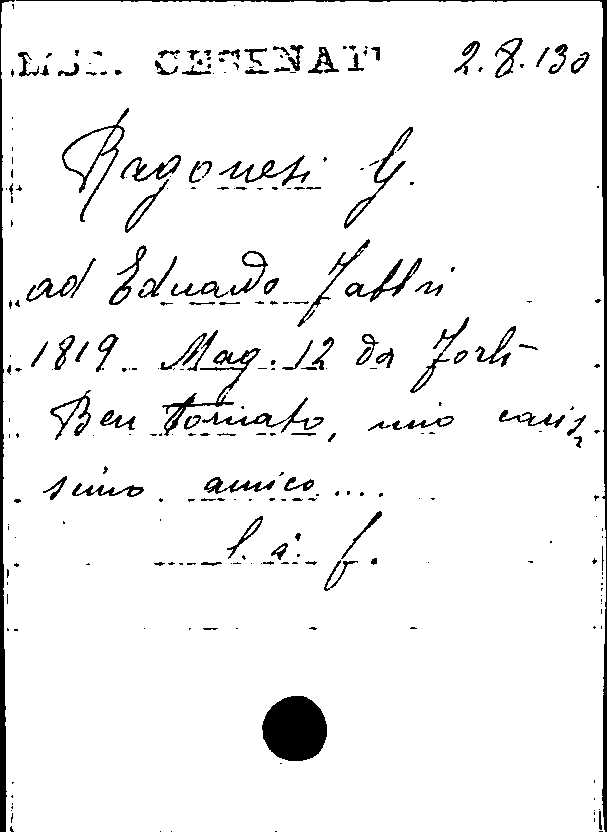 MSS. CESENATI 2.8.130
Ragonesi G.
ad Eduardo Fabbri
1819 Mag. 12 da Forlì
Ben tornato, mio caris-
simo amico....
l. a. f.